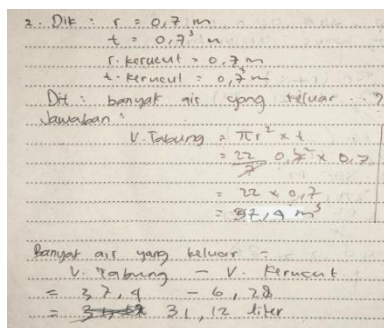 2. Dik : r = 0,7 m
t = 0,7³ m
r. kerucut = 0,7 m
t. kerucut = 0,7 m
Dit : banyak air yang keluar ..?
Jawaban :
V. Tabung = πr² x t
= 22/7 0,7² x 0,7
= 22 x 0,7
= 37,4 m³
Banyak air yang keluar =
V. Tabung - V. Kerucut
= 37,4 - 6,28
= 31,12 liter